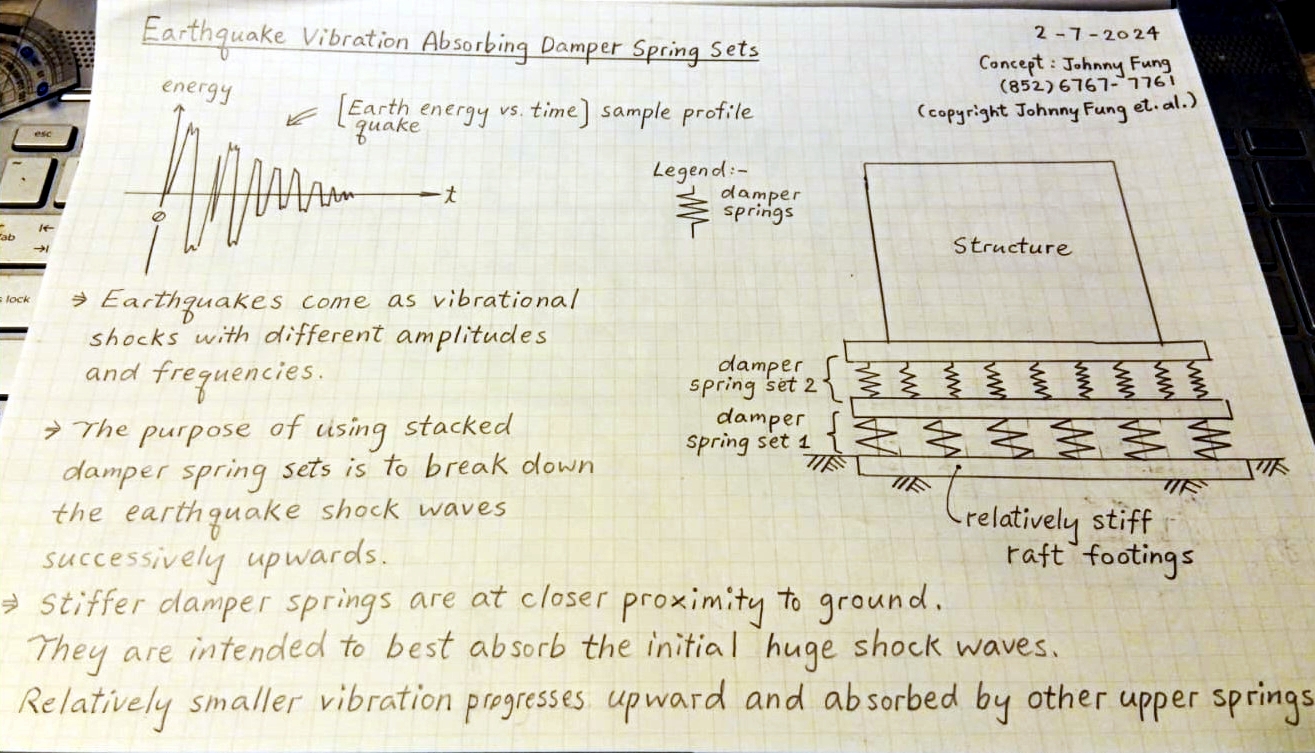 Earthquake Vibration Absorbing Damper Spring Sets
2-7-2024
Concept : Johnny Fung
(852) 6767-7761
(copyright Johnny Fung et. al.)
energy
[Earth energy vs. time] sample profile
quake
t
0
Legend:-
damper
springs
Structure
damper
spring set 2
damper
spring set 1
relatively stiff
raft footings
⇒ Earthquakes come as vibrational
shocks with different amplitudes
and frequencies.
→ The purpose of using stacked
damper spring sets is to break down
the earthquake shock waves
successively upwards.
⇒ Stiffer damper springs are at closer proximity to ground.
They are intended to best absorb the initial huge shock waves.
Relatively smaller vibration progresses upward and absorbed by other upper springs
esc
ab
lock